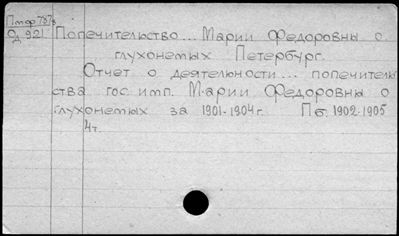 Од 921 Попечительство... Марии Федоровны о
глухонемых Петербург.
Отчет о деятельности... попечитель
ства гос. имп. Марии Федоровны о
глухонемых за 1901-1904 г. Пб. 1902-1905
4т.